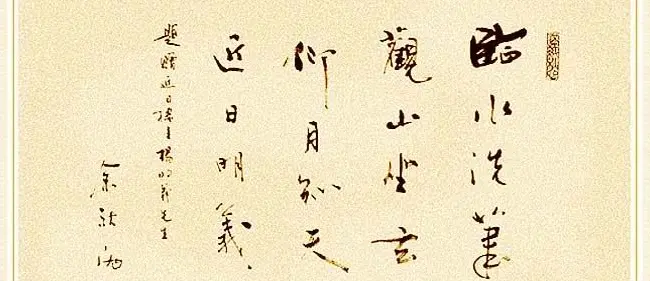 臨水洗筆
觀山坐玄
仰月知天
近日明義
題贈近日樓主楊明義先生
余秋雨